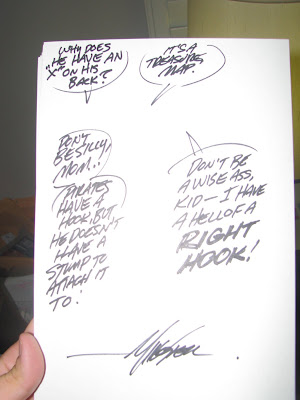 WHY DOES
HE HAVE AN
"X" ON HIS
BACK?
IT'S A
TREASURE
MAP.
DON'T
BE SILLY,
MOM..
PIRATES
HAVE A
HOOK, BUT
HE DOESN'T
HAVE A
STUMP TO
ATTACH IT
TO!
DON'T BE
A WISE ASS,
KID — I HAVE
A HELL OF A
RIGHT
HOOK!